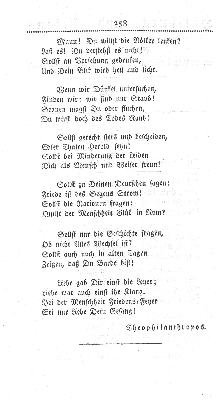 258
Mann! Du willst die Völker lenken?
Laß es! Du verstehst es nicht!
Sollst an Vorsehung gedenken,
Und Dein Blick wird hell und licht.
Wenn wir Dünkel untersuchen,
Finden wir: wir sind nur Staub!
Segnen magst Du oder fluchen,
Du wirst doch des Todes Raub!
Sollst gerecht stets und bescheiden,
Edler Thaten Herold seyn!
Sollst bei Minderung der Leiden
Dich als Mensch und Weiser freun!
Sollst zu Deinen Deutschen sagen:
Friede ist des Segens Strom!
Sollst die Nationen fragen:
der Menschheit Glück in
Sollst nur die Geschichte fragen,
Ob nicht Alles Wechsel ist?
Sollst auch noch in alten Tagen
Zeigen, daß Du Barde bist!
Liebe gab Dir einst die Leyer;
Liebe war auch einst ihr Klang.
Bei der Menschheit Friedens-Feyer
Sei nur Liebe Dein Gesang!
Theophilanthropos.